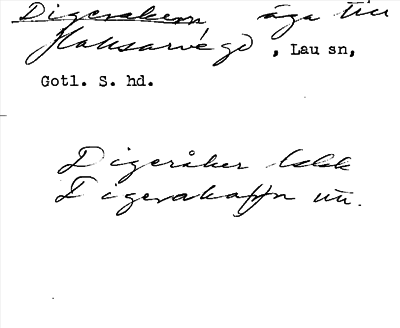 Digerakern äga till
Haksarve gd, Lau sn,
Gotl. S. hd.
Digeråker
Digerakappn